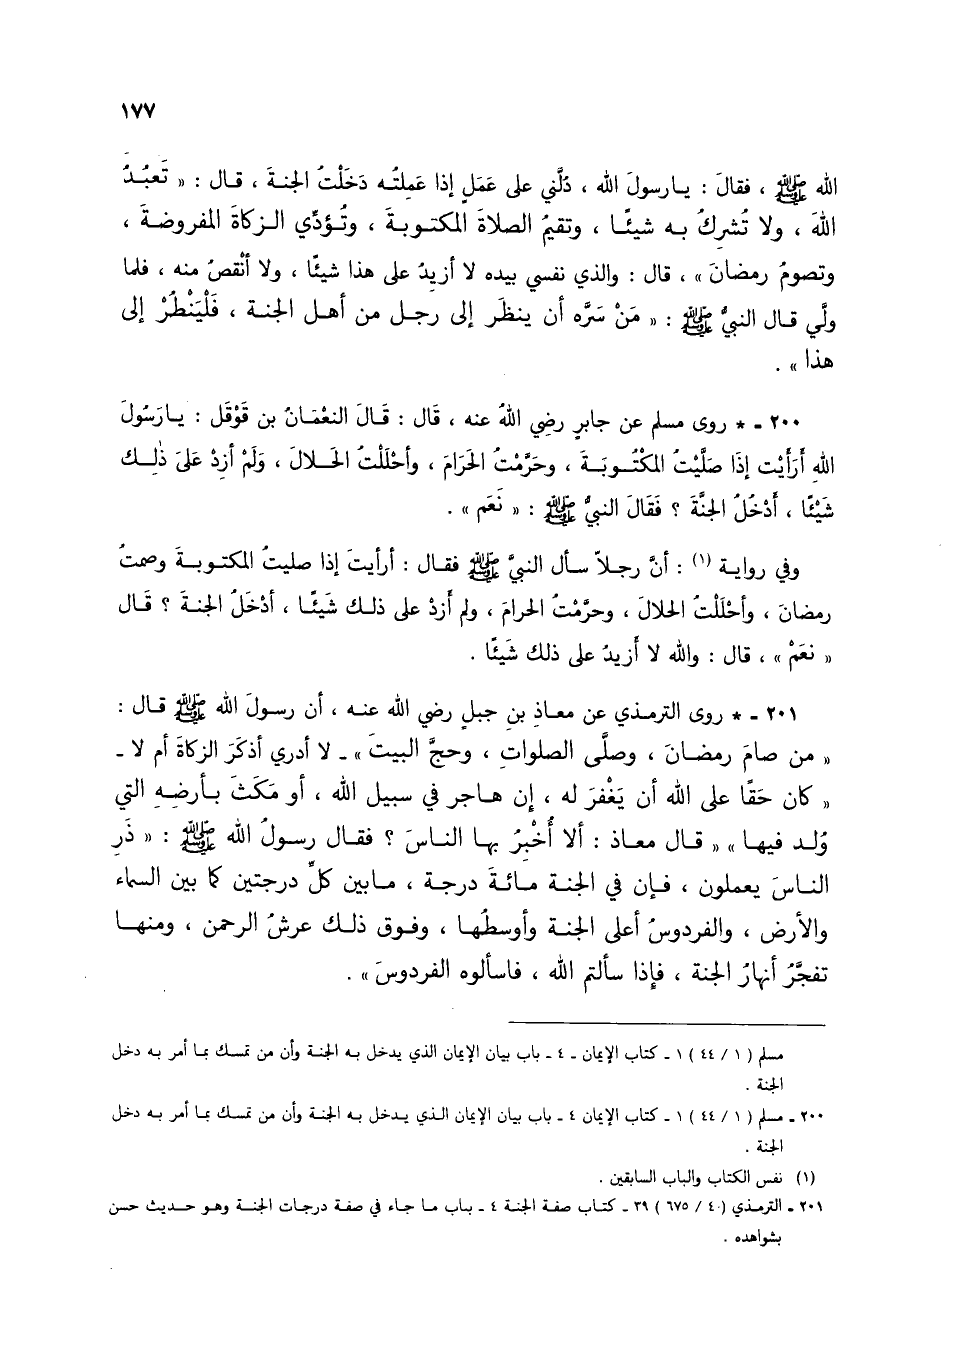 ١٧٧
الله ﷺ ، فقالَ : يارسولَ الله ، دُلَّني على عَمَلٍ إذا عَمِلتُه دَخَلْتُ الجنةَ ، قال : « تَعبُدُ
اللهَ ، ولا تُشركُ به شيئًا ، وتقيمُ الصلاةَ المكتوبةَ ، وتُؤدِّي الزكاةَ المفروضةَ ،
وتصومُ رمضانَ » ، قال : والذي نفسي بيده لا أزيدُ على هذا شيئًا ، ولا أنْقصُ منه ، فلما
ولَّي قال النبيُّ ﷺ : « مَنْ سَرَّه أن ينظَر إلى رجل من أهل الجنة ، فَلْيَنْظُرْ إلى
هذا » .
٢٠٠ ـ * روى مسلم عن جابرٍ رضِي اللهُ عنه ، قَال : قَالَ النعْمَانُ بن قَوْقَل : يارَسُولَ
اللهِ أرَأَيْت إذَا صلَّيْتُ المكْتُوبَةَ ، وحَرَّمْتُ الحَرامَ ، وأحْلَلْتُ الحَلالَ ، وَلَمْ أزِدْ عَلَىَ ذٰلِك
شَيْئًا ، أَدْخُلُ الجنَّةَ ؟ فَقَالَ النبيُّ ﷺ : « نَعَم » .
وفي رواية (١) : أنَّ رجلاً سأل النبيَّ ﷺ فقال : أرأيتَ إذا صليتُ المكتوبةَ وصمتُ
رمضانَ ، وأحْلَلْتُ الحلالَ ، وحرَّمْتُ الحرامَ ، ولم أَزدْ على ذلك شَيئًا ، أدْخَلُ الجنةَ ؟ قَال
« نعَمْ » ، قال : والله لا أَزيدُ على ذلك شَيئًا .
٢٠١ ـ * روى الترمذي عن معاذِ بنِ جبلٍ رضي الله عنه ، أن رسولَ الله ﷺ قال :
« من صامَ رمضانَ ، وصلَّى الصلواتِ ، وحجَّ البيتَ » ـ لا أدري أذكَرَ الزكاةَ أم لا ـ
« كان حَقًا على الله أن يَغْفرَ له ، إن هاجر في سبيل الله ، أو مَكَثَ بأرضِهِ التي
وُلد فيها » « قال معاذ : ألا أُخْبرُ بها الناسَ ؟ فقال رسولُ الله ﷺ : « ذَرِ
الناسَ يعملون ، فإن في الجنة مائةَ درجة ، مابين كلِّ درجتين كما بين السماء
والأرض ، والفردوسُ أعلى الجنة وأوسطُها ، وفوق ذلك عرشُ الرحمن ، ومنها
تفجَّرُ أنهارُ الجنة ، فإذا سألتم الله ، فاسألوه الفردوسَ » .
مسلم ( ١ / ٤٤ ) ١ ـ كتاب الإيمان ـ ٤ ـ باب بيان الإيمان الذي يدخل به الجنة وأن من تمسك بما أمر به دخل
الجنة .
٢٠٠ ـ مسلم ( ١ / ٤٤ ) ١ ـ كتاب الإيمان ٤ ـ باب بيان الإيمان الذي يدخل به الجنة وأن من تمسك بما أمر به دخل
الجنة .
(١) نفس الكتاب والباب السابقين .
٢٠١ ـ الترمذي ( ٤ / ٦٧٥ ) ٣٩ ـ كتاب صفة الجنة ٤ ـ باب ما جاء في صفة درجات الجنة وهو حديث حسن
بشواهده .